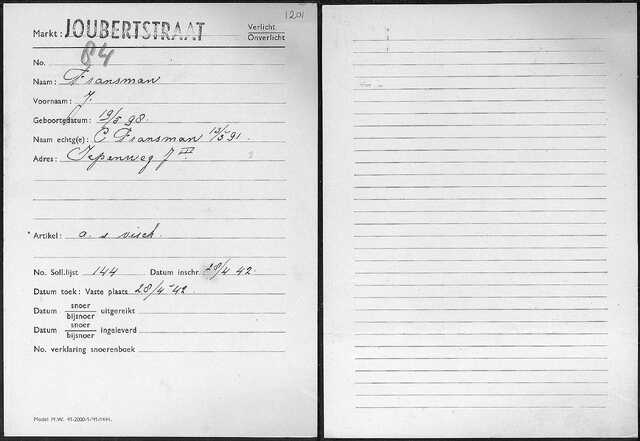 1201
Markt: JOUBERTSTRAAT Verlicht
Onverlicht
No. 84
Naam: Fransman
Voornaam: J.
Geboortedatum: 19/5 98.
Naam echtg(e): C Fransman 13/5 91.
Adres: Iepenweg 7 III
* Artikel: a. s. visch.
No. Soll.lijst 144 Datum inschr. 28/4 42.
Datum toek: Vaste plaats 28/4-42
Datum snoer/bijsnoer uitgereikt
Datum snoer/bijsnoer ingeleverd
No. verklaring snoerenboek
Model M.W. 41-2000-5/41-1441.